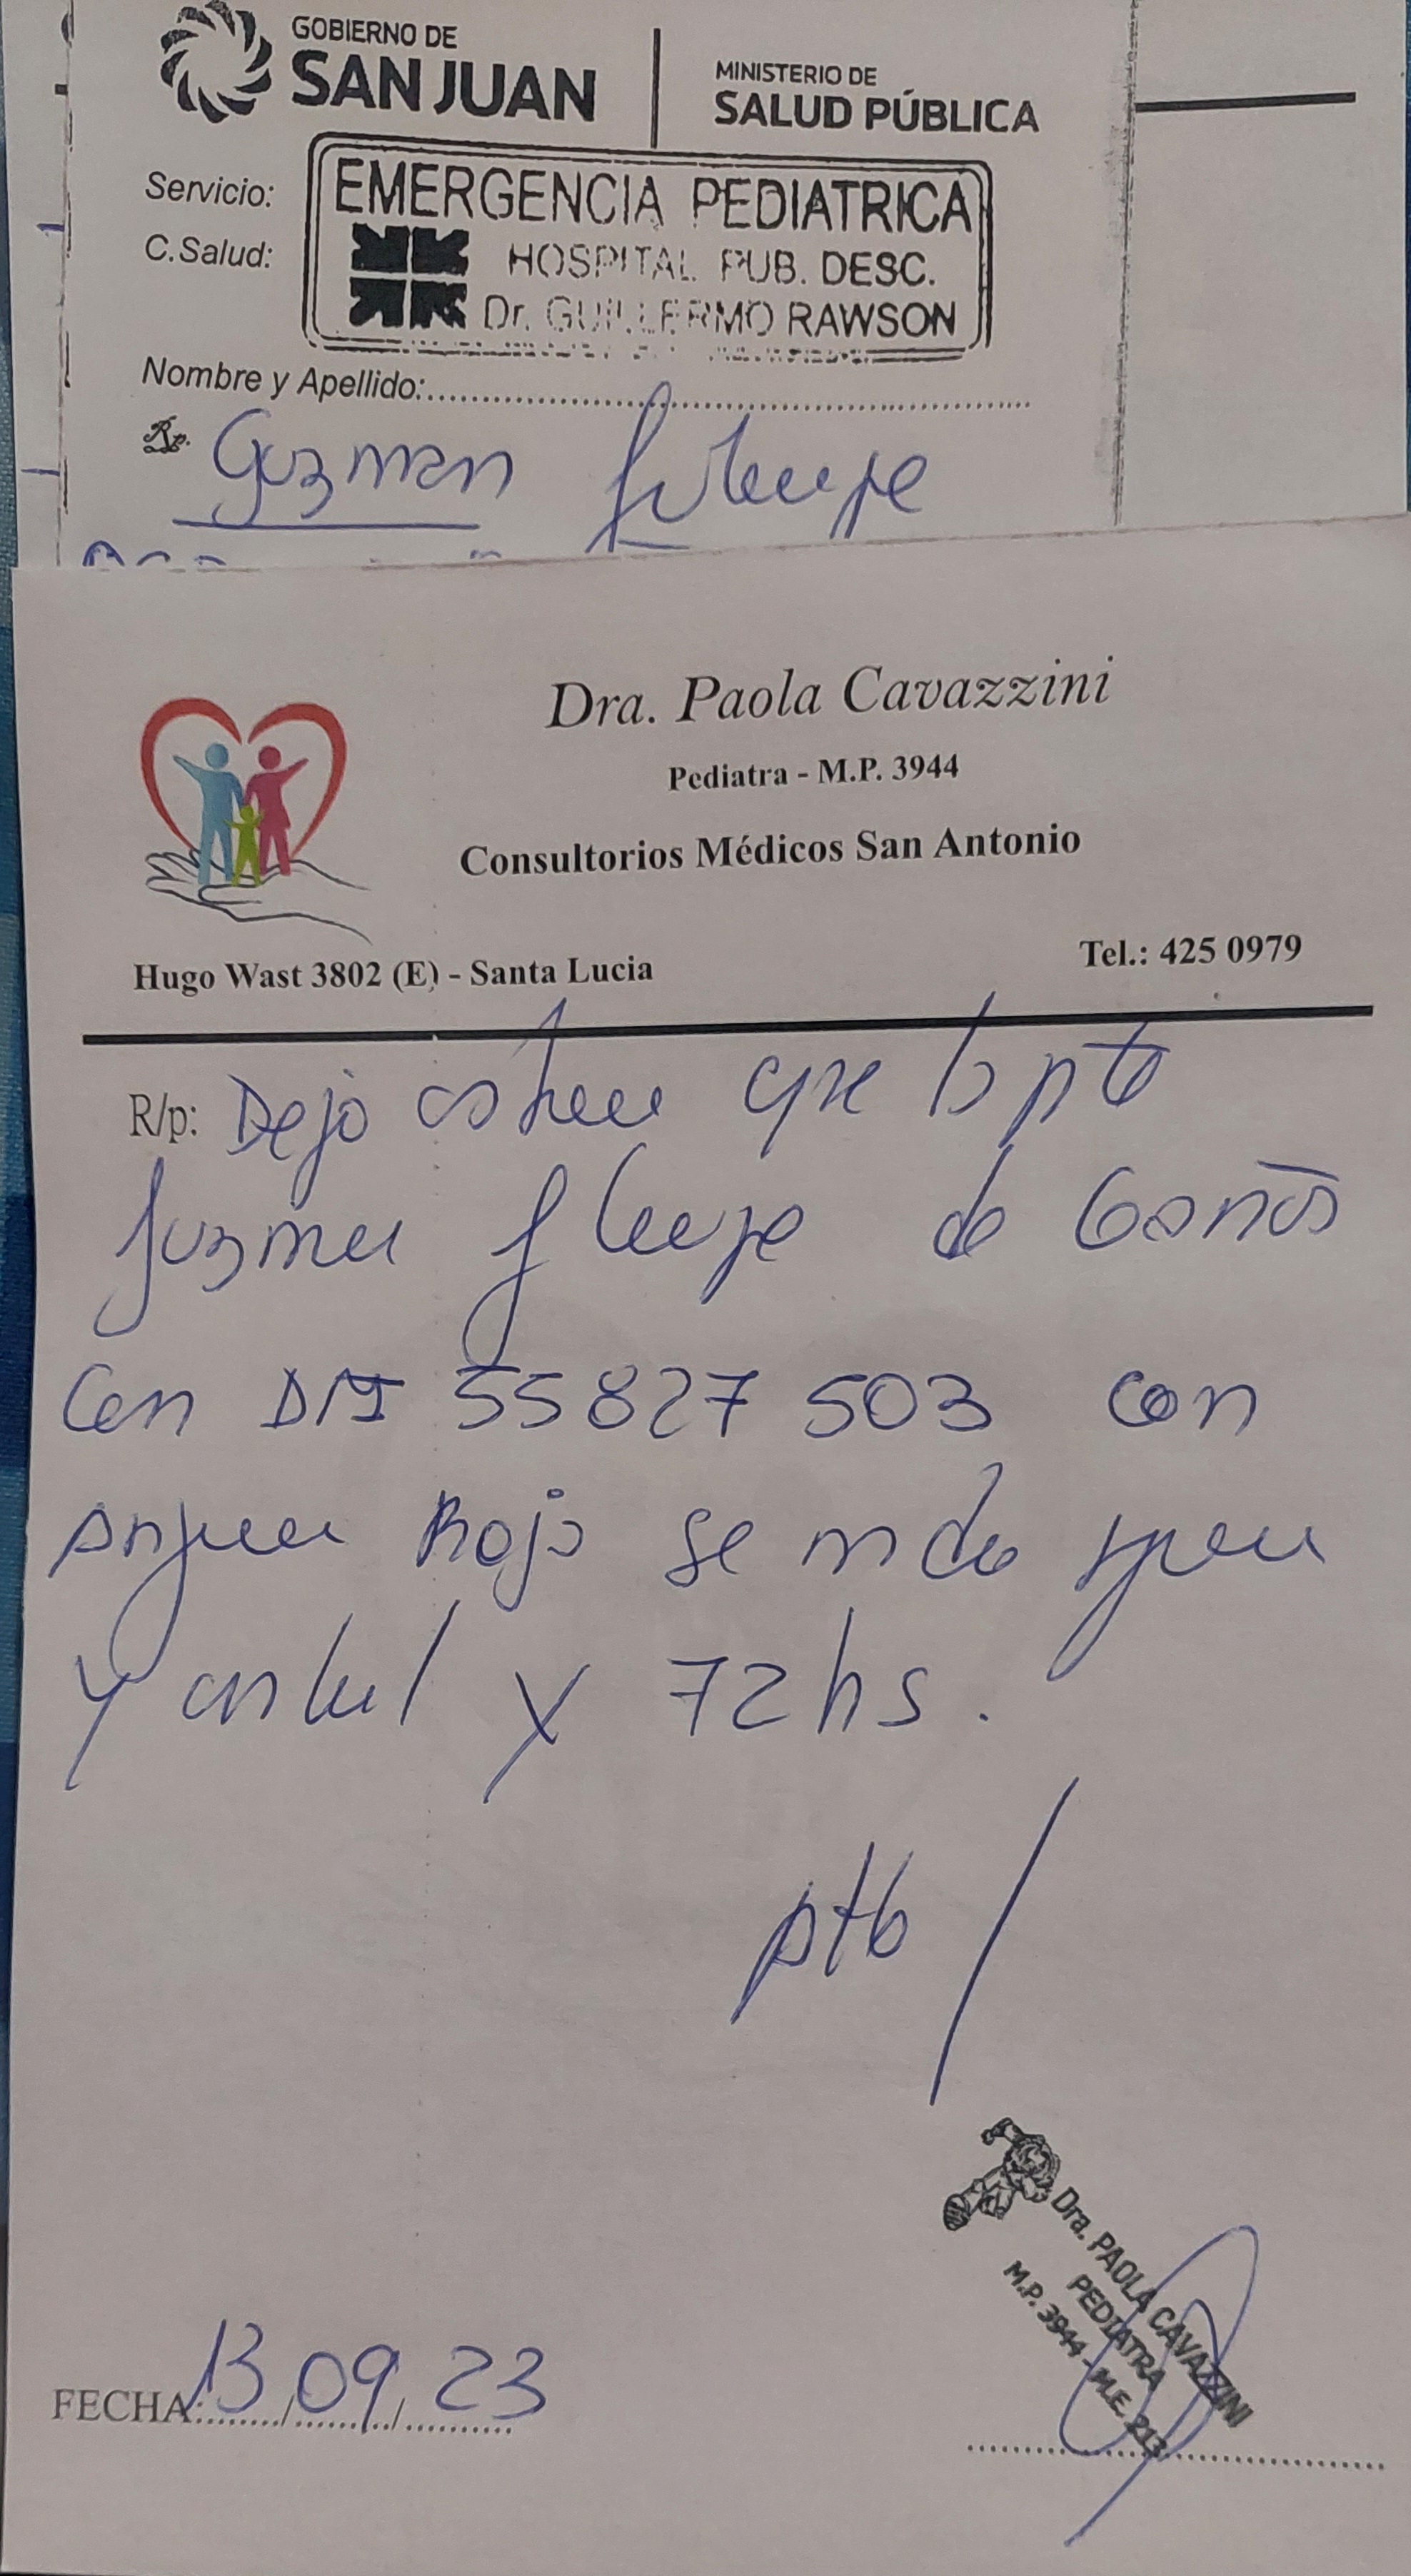 GOBIERNO DE
SAN JUAN
MINISTERIO DE
SALUD PÚBLICA
Servicio:
C.Salud:
EMERGENCIA PEDIATRICA
HOSPITAL PUB. DESC.
Dr. GUILLERMO RAWSON
Nombre y Apellido:
Rp. Guzman
Dra. Paola Cavazzini
Pediatra - M.P. 3944
Consultorios Médicos San Antonio
Hugo Wast 3802 (E) - Santa Lucia
Tel.: 425 0979
R/p: Dejo que
de 6 años
Con DNI 55827503 con
Rojo se
y control x 72 hs.
FECHA: 13/09/23
Dra. PAOLA CAVAZZINI
PEDIATRA
M.P. 3944 - M.E. 213